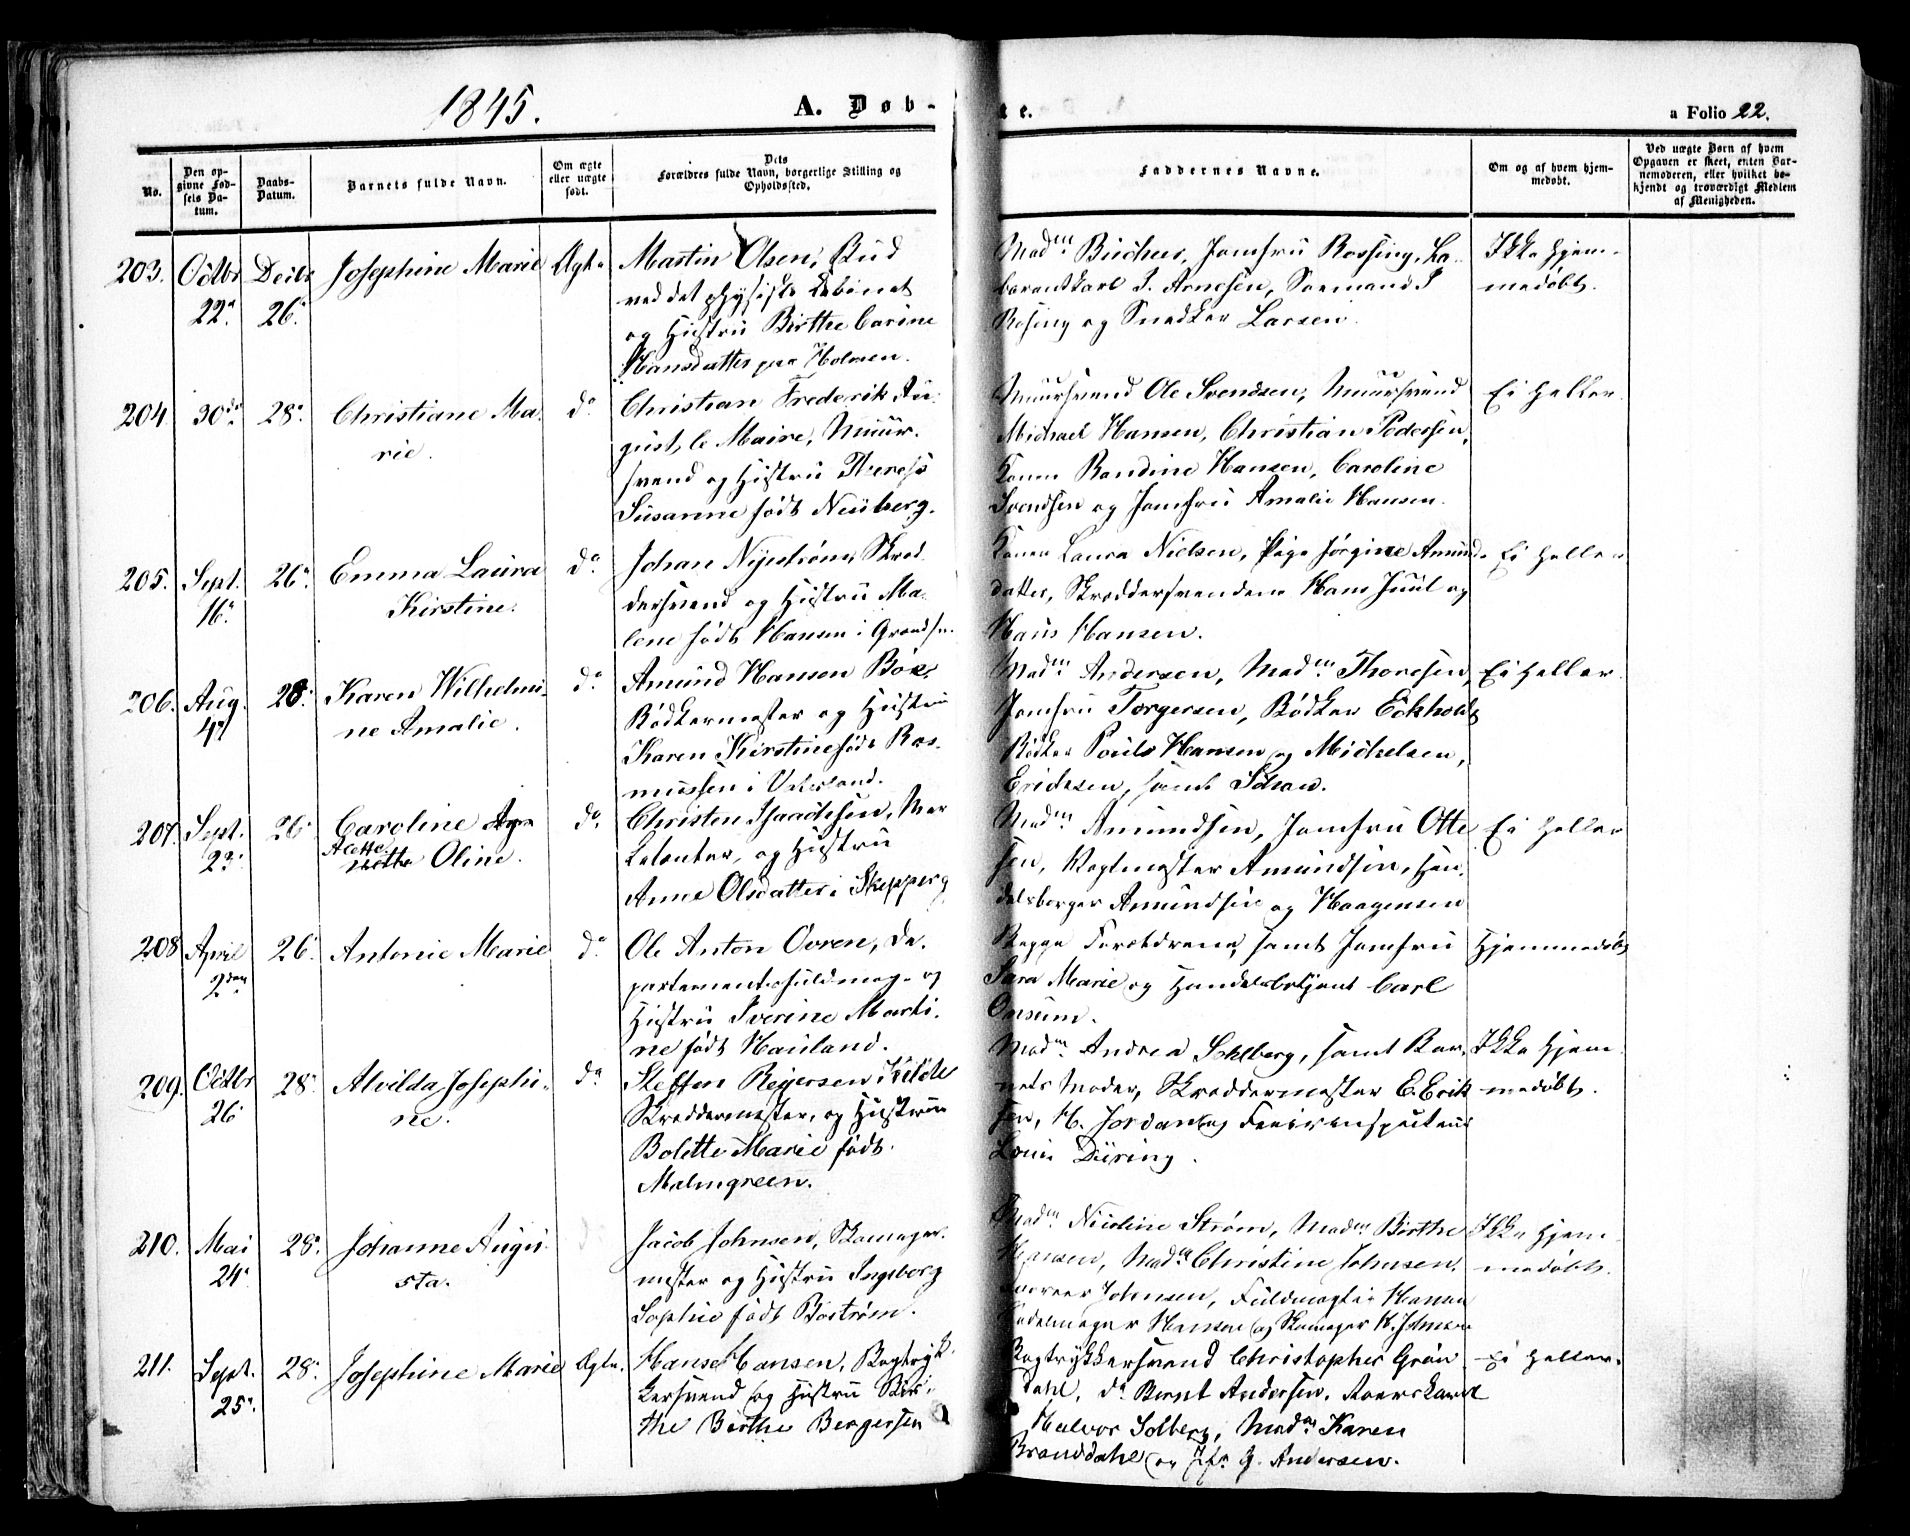 1845.
A. Døb-
te.
a Folio 22.
No.
Den op-
givne Fød-
sels Da-
tum.
Daabs-
Datum.
Barnets fulde Navn.
Om ægte
eller uægte
født.
Dets
Forældres fulde Navn, borgerlige Stilling og
Opholdssted.
Faddernes Navne.
Om og af hvem hjem-
medøbt.
Ved uægte Børn af hvem
Opgaven er skeet, enten Bar-
nemoderen, eller hvilket be-
kjendt og troværdigt Medlem
af Menigheden.
203.
Octbr
22de
Decbr
26.
Josephine Marie
Ægte
Martin Olsen, Bud
ved det physiske Cabinet
og Hustru Birthe Carine
Hansdatter paa Holmen.
Madm Bücher, Jomfru Rossing, La-
borantkarl P. Arnesen, Sømand P
Rosing og Snedker Larsen.
Ikke hjem-
medøbt.
204.
30de
28.
Christiane Ma-
rie.
do
Christian Frederik Au-
gust le Maire, Muur-
svend og Hustru Therese
Susanne født Neuberg.
Muursvend Ole Svendsen, Muursvend
Michael Hansen, Christian Pedersen,
Konen Randine Hansen, Caroline
Svendsen og Jomfru Amalie Hansen.
Ei heller.
205.
Sept.
16.
26.
Emma Laura
Kirstine.
do
Johan Nyström, Skræd-
dersvend og Hustru Ma-
lene født Hansen i Grændsen.
Konen Laura Nielsen, Pige Jørgine Amund-
datter, Skræddersvendene Hans Juul og
Hans Hansen.
Ei heller
206.
Aug.
4
28.
Karen Wilhelmi-
ne Amalie.
do
Amund Hansen Boe,
Bødkermester og Hustru
Karen Kirstine født Ras-
mussen i Vaterland.
Madm Andersen, Madm Thoresen,
Jomfru Torgersen, Bødker Eckholdt
Bødker Pouls Hansen og Michelsen,
Ericksen, samt Johan.
Ei heller.
207.
Sept.
2
26
Caroline
Alette
Oline.
do
Christen Isaachsen, Mar-
ketenter, og Hustru
Anne Olsdatter i Skipperg.
Madm Amundsen, Jomfru Otte-
sen, Vagtmester Amundsen, Han-
delsborger Amundsen og Haagensen
Ei heller
208
April
2den
26.
Antonie Marie
do
Ole Anton Ovren, De-
partementsfuldmæg. og
Hustru Iverine Marti-
ne født Hauland.
Begge Forældrene, samt Jomfru
Sara Marie og Handelsbetjent Carl
Onsum.
Hjemmedøbt
209.
Octbr
26
28.
Alvilda Josephi-
ne.
do
Steffen Reyersen Kilde
Skreddermester, og Hustru
Bolette Marie født
Malmgreen.
Madm Andrea Sohlberg, samt Bar-
nets Moder, Skreddermester E. Erik-
sen, H. Jordan og
Louis Düring.
Ikke hjem-
medøbt.
210.
Mai
24.
28.
Johanne Augu-
sta.
Jacob Johnsen, Skomager-
mester og Hustru Ingeborg
Sophie født Boström.
Madm Nicoline Strøm, Madm Birthe
Hansen, Madm Christine Johnsen,
Johnsen, Fuldmægtig Hansen
Hansen og Skomager H. Johnsen
Ikke hjem-
medøbt.
211.
Sept.
25.
28.
Josephine Marie
Ægte.
Hans Hansen, Bogtryk-
kersvend og Hustru Kirs-
the Birthe Bergersen
Bogtrykkersvend Christopher Grön-
dahl, do Bernt Andersen,
Halvor Solberg, Madm Karen
Branddahl og Jfr. G. Andersen.
Ei heller.